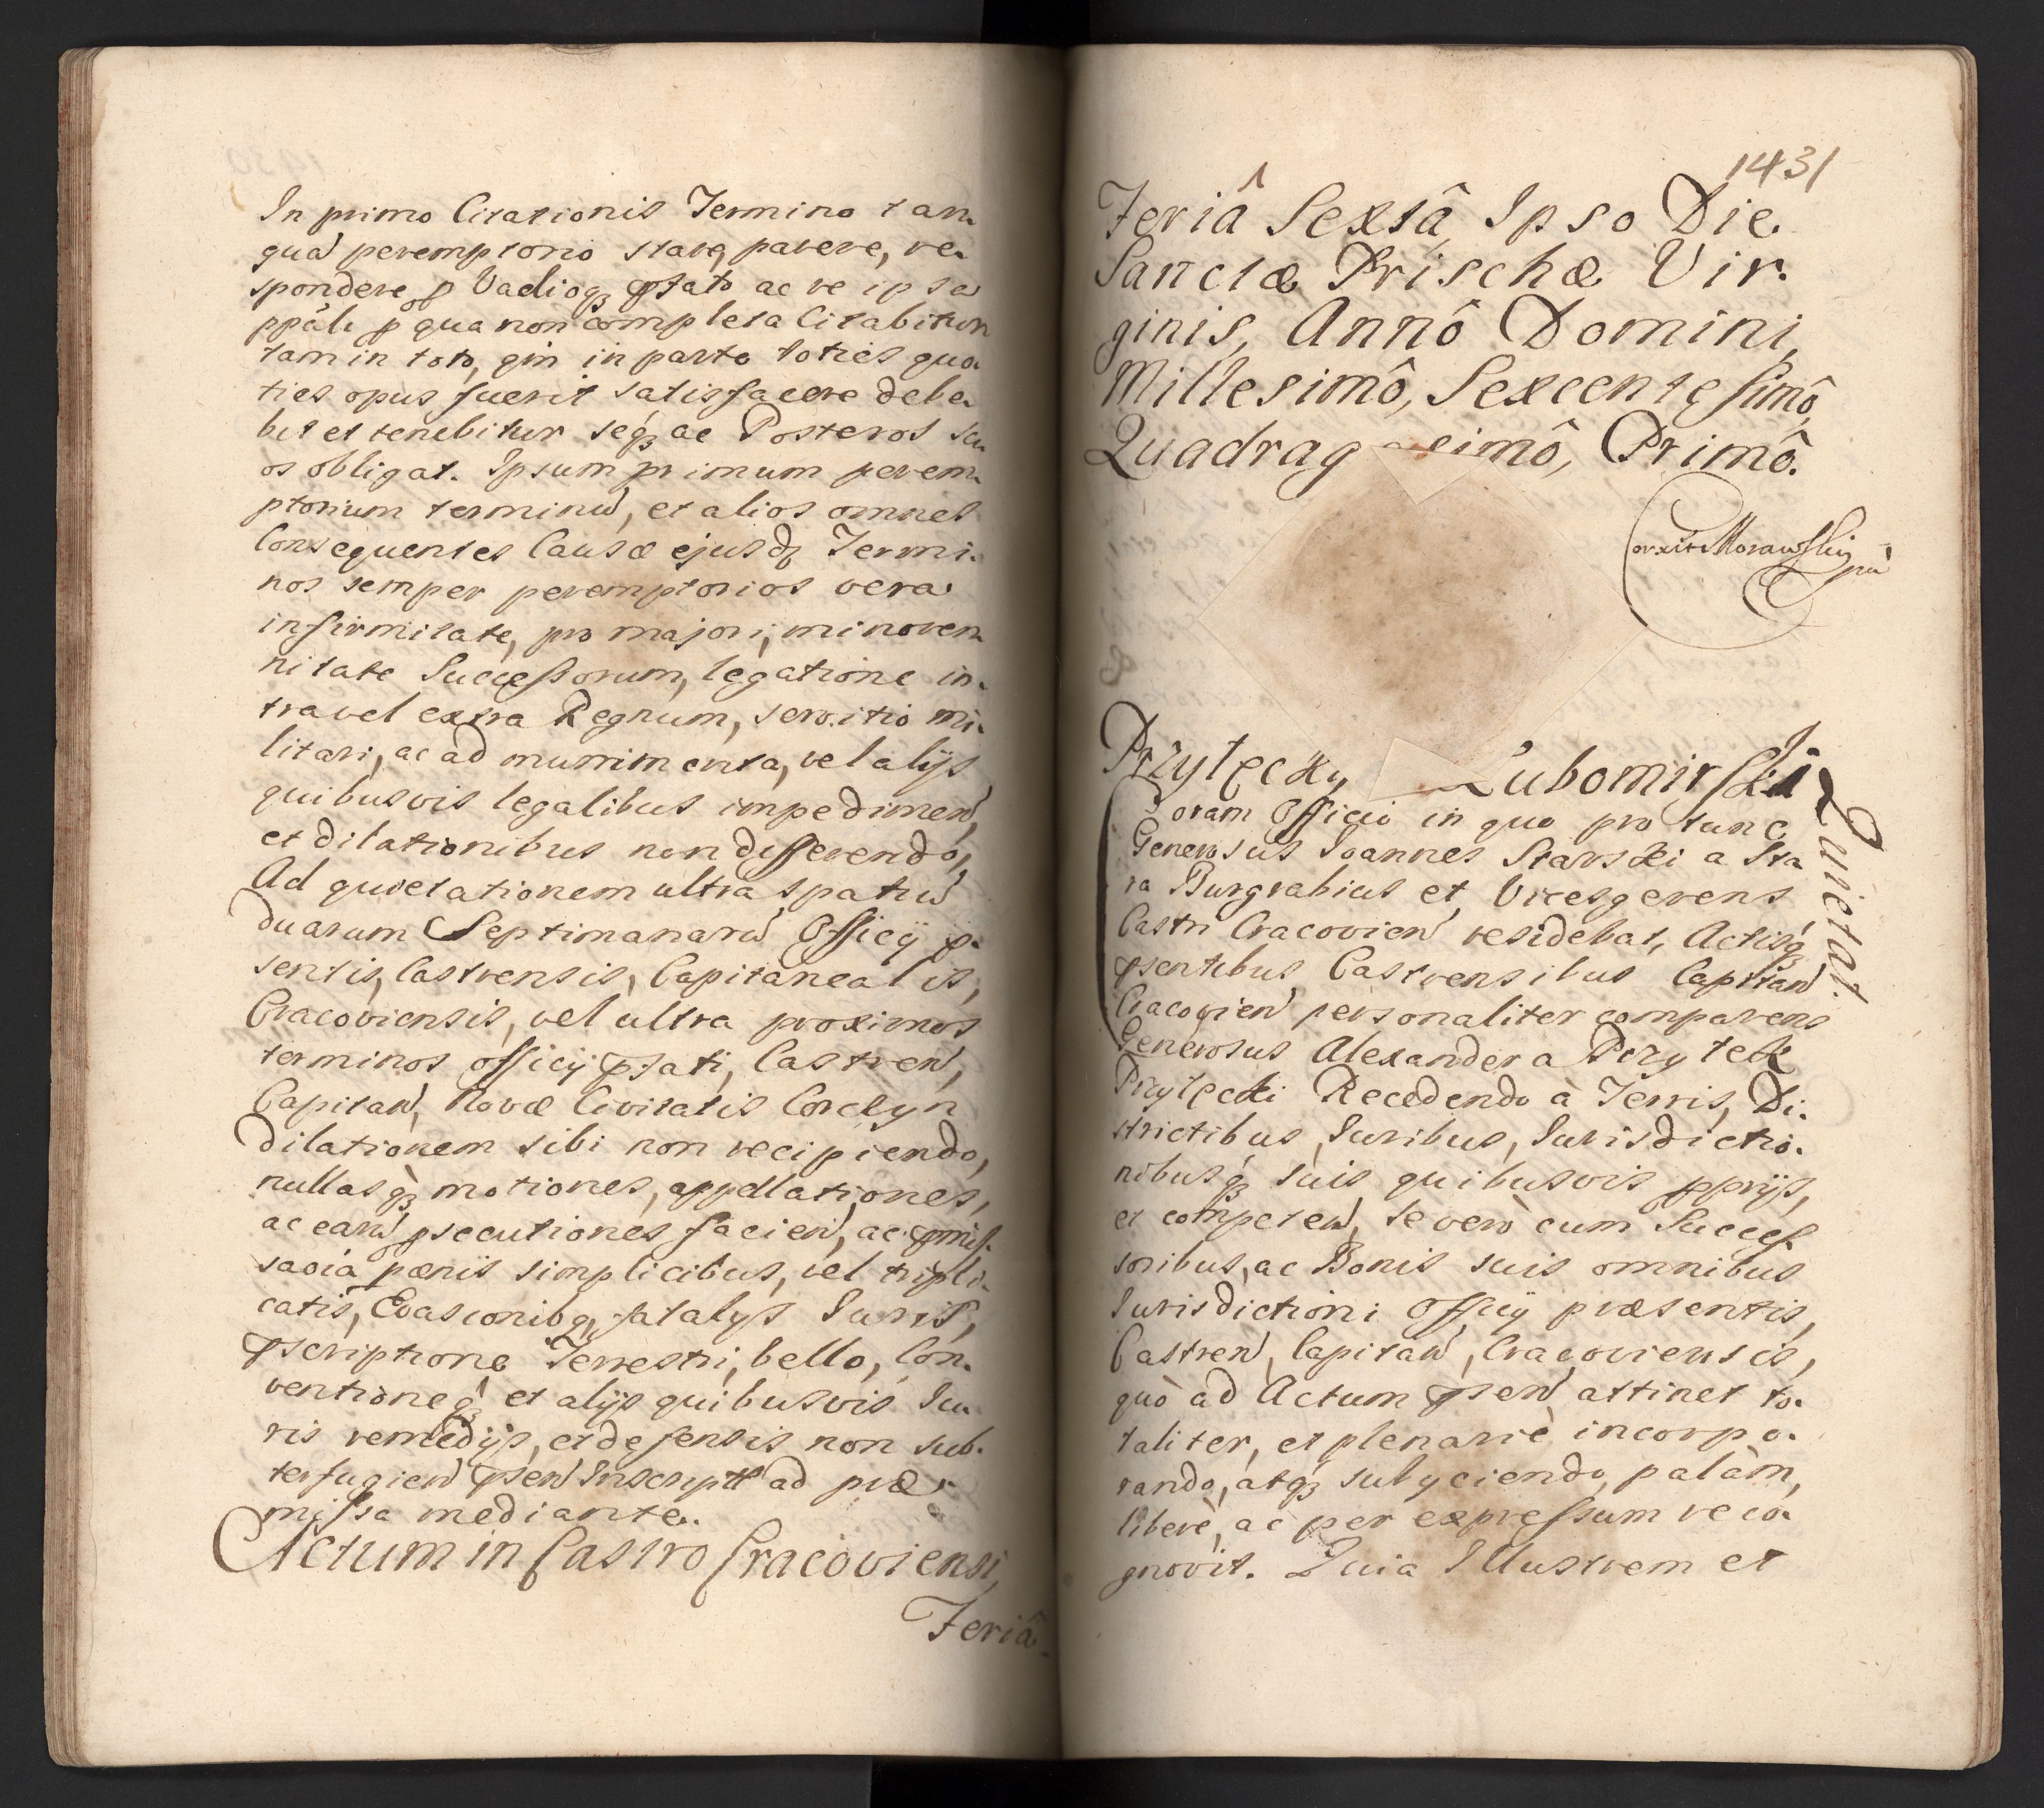 In primo Citationis Termino tan-
quã peremptorio stare, parere, re-
spondere p Vadioq; pstato ac re ipsa
ppãli p qua non completa Citabitur
tam in toto, qm in parte toties quo-
ties opus fuerit satisfacere debe-
bit et tenebitur seq; ac Posteros su-
os obligat. Ipsum primum perem-
ptorium terminũ, et alios omnes
Consequentes Causæ ejusdę Termi-
nos semper peremptorios vera
infirmitate, pro majori, minoren-
nitate Successorum, legatione in-
tra vel extra Regnum, servitio mi-
litari, ac ad munimenta, vel alijs
quibusvis legalibus impedimen,
et dilationibus non differendo,
Ad quietationem ultra spatiũ
duarum Septimanarũ Officij p-
sentis, Castrensis, Capitanealis,
Cracoviensis, vel ultra proximos
terminos officij pfati, Castren,
Capitan, Novæ Civitatis Corczyn
dilationem sibi non recipiendo,
nullasq; motiones, appellationes,
ac earũ psecutiones facien, ac pmis-
saoia pænis simplicibus, vel tripli-
catis, Evasionibq, fatalys Juris,
pscriptione Terrestri, bello, Con-
ventioneq; et alijs quibusvis Ju-
ris remedijs, et defensis non sub-
terfugien psen Inscriptt ad præ-
missa mediante.
Actum in Castro Cracoviensi,
Feriâ
1431
Feriâ Sextâ Ipso Die
Sanctæ Prischæ Vir-
ginis, Annô Domini,
Millesimô, Sexcentesimô,
Quadragesimô, Primô.
Corxit Morawskij
mã
Przyłęcky, Lubomirski
Quietat.
Coram Officio in quo pro tunc
Generosus Joannes Starski a Sta
ra Burgrabius et Vicesgerens
Castri Cracovien residebat, Actisq;
psentibus Castrensibus Capitan
Cracovien personaliter comparens
Generosus Alexander a Przytek
Przyłęcki Recedendo à Terris, Di-
strictibus, Juribus, Jurisdictio-
nibusq; suis quibusvis pprijs,
et competen, se verò cum Succes-
soribus, ac Bonis suis omnibus
Jurisdictioni Officij præsentis,
Castren, Capitan, Cracoviensis,
quò ad Actum psen attinet to-
taliter, et plenariè incorpo-
rando, atq; subijciendo, palàm,
liberè, ac per expressum reco-
gnovit. Quia Illustrem et